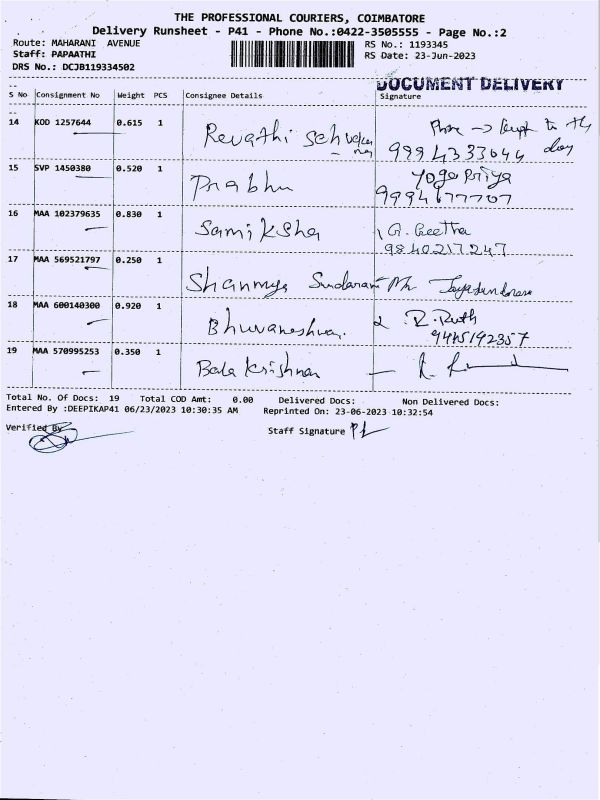 THE PROFESSIONAL COURIERS, COIMBATORE
Delivery Runsheet - P41 - Phone No.:0422-3505555 - Page No.:2
Route: MAHARANI AVENUE RS No.: 1193345
Staff: PAPAATHI RS Date: 23-Jun-2023
DRS No.: DCJB119334502
DOCUMENT DELIVERY
S No Consignment No Weight PCS Consignee Details Signature
14 KOD 1257644 0.615 1 Revathi Phone → to
9994333044 day
15 SVP 1450380 0.520 1 Prabhu Yoga Priya
9994677707
16 MAA 102379635 0.830 1 Samiksha G. Geetha
9840217247
17 MAA 569521797 0.250 1 Shanmuga Sundaram
18 MAA 600140300 0.920 1 Bhuvaneshwari R. Ruth
9445192357
19 MAA 570995253 0.350 1 Bala Krishnan
Total No. Of Docs: 19 Total COD Amt: 0.00 Delivered Docs: Non Delivered Docs:
Entered By :DEEPIKAP41 06/23/2023 10:30:35 AM Reprinted On: 23-06-2023 10:32:54
Verified By Staff Signature